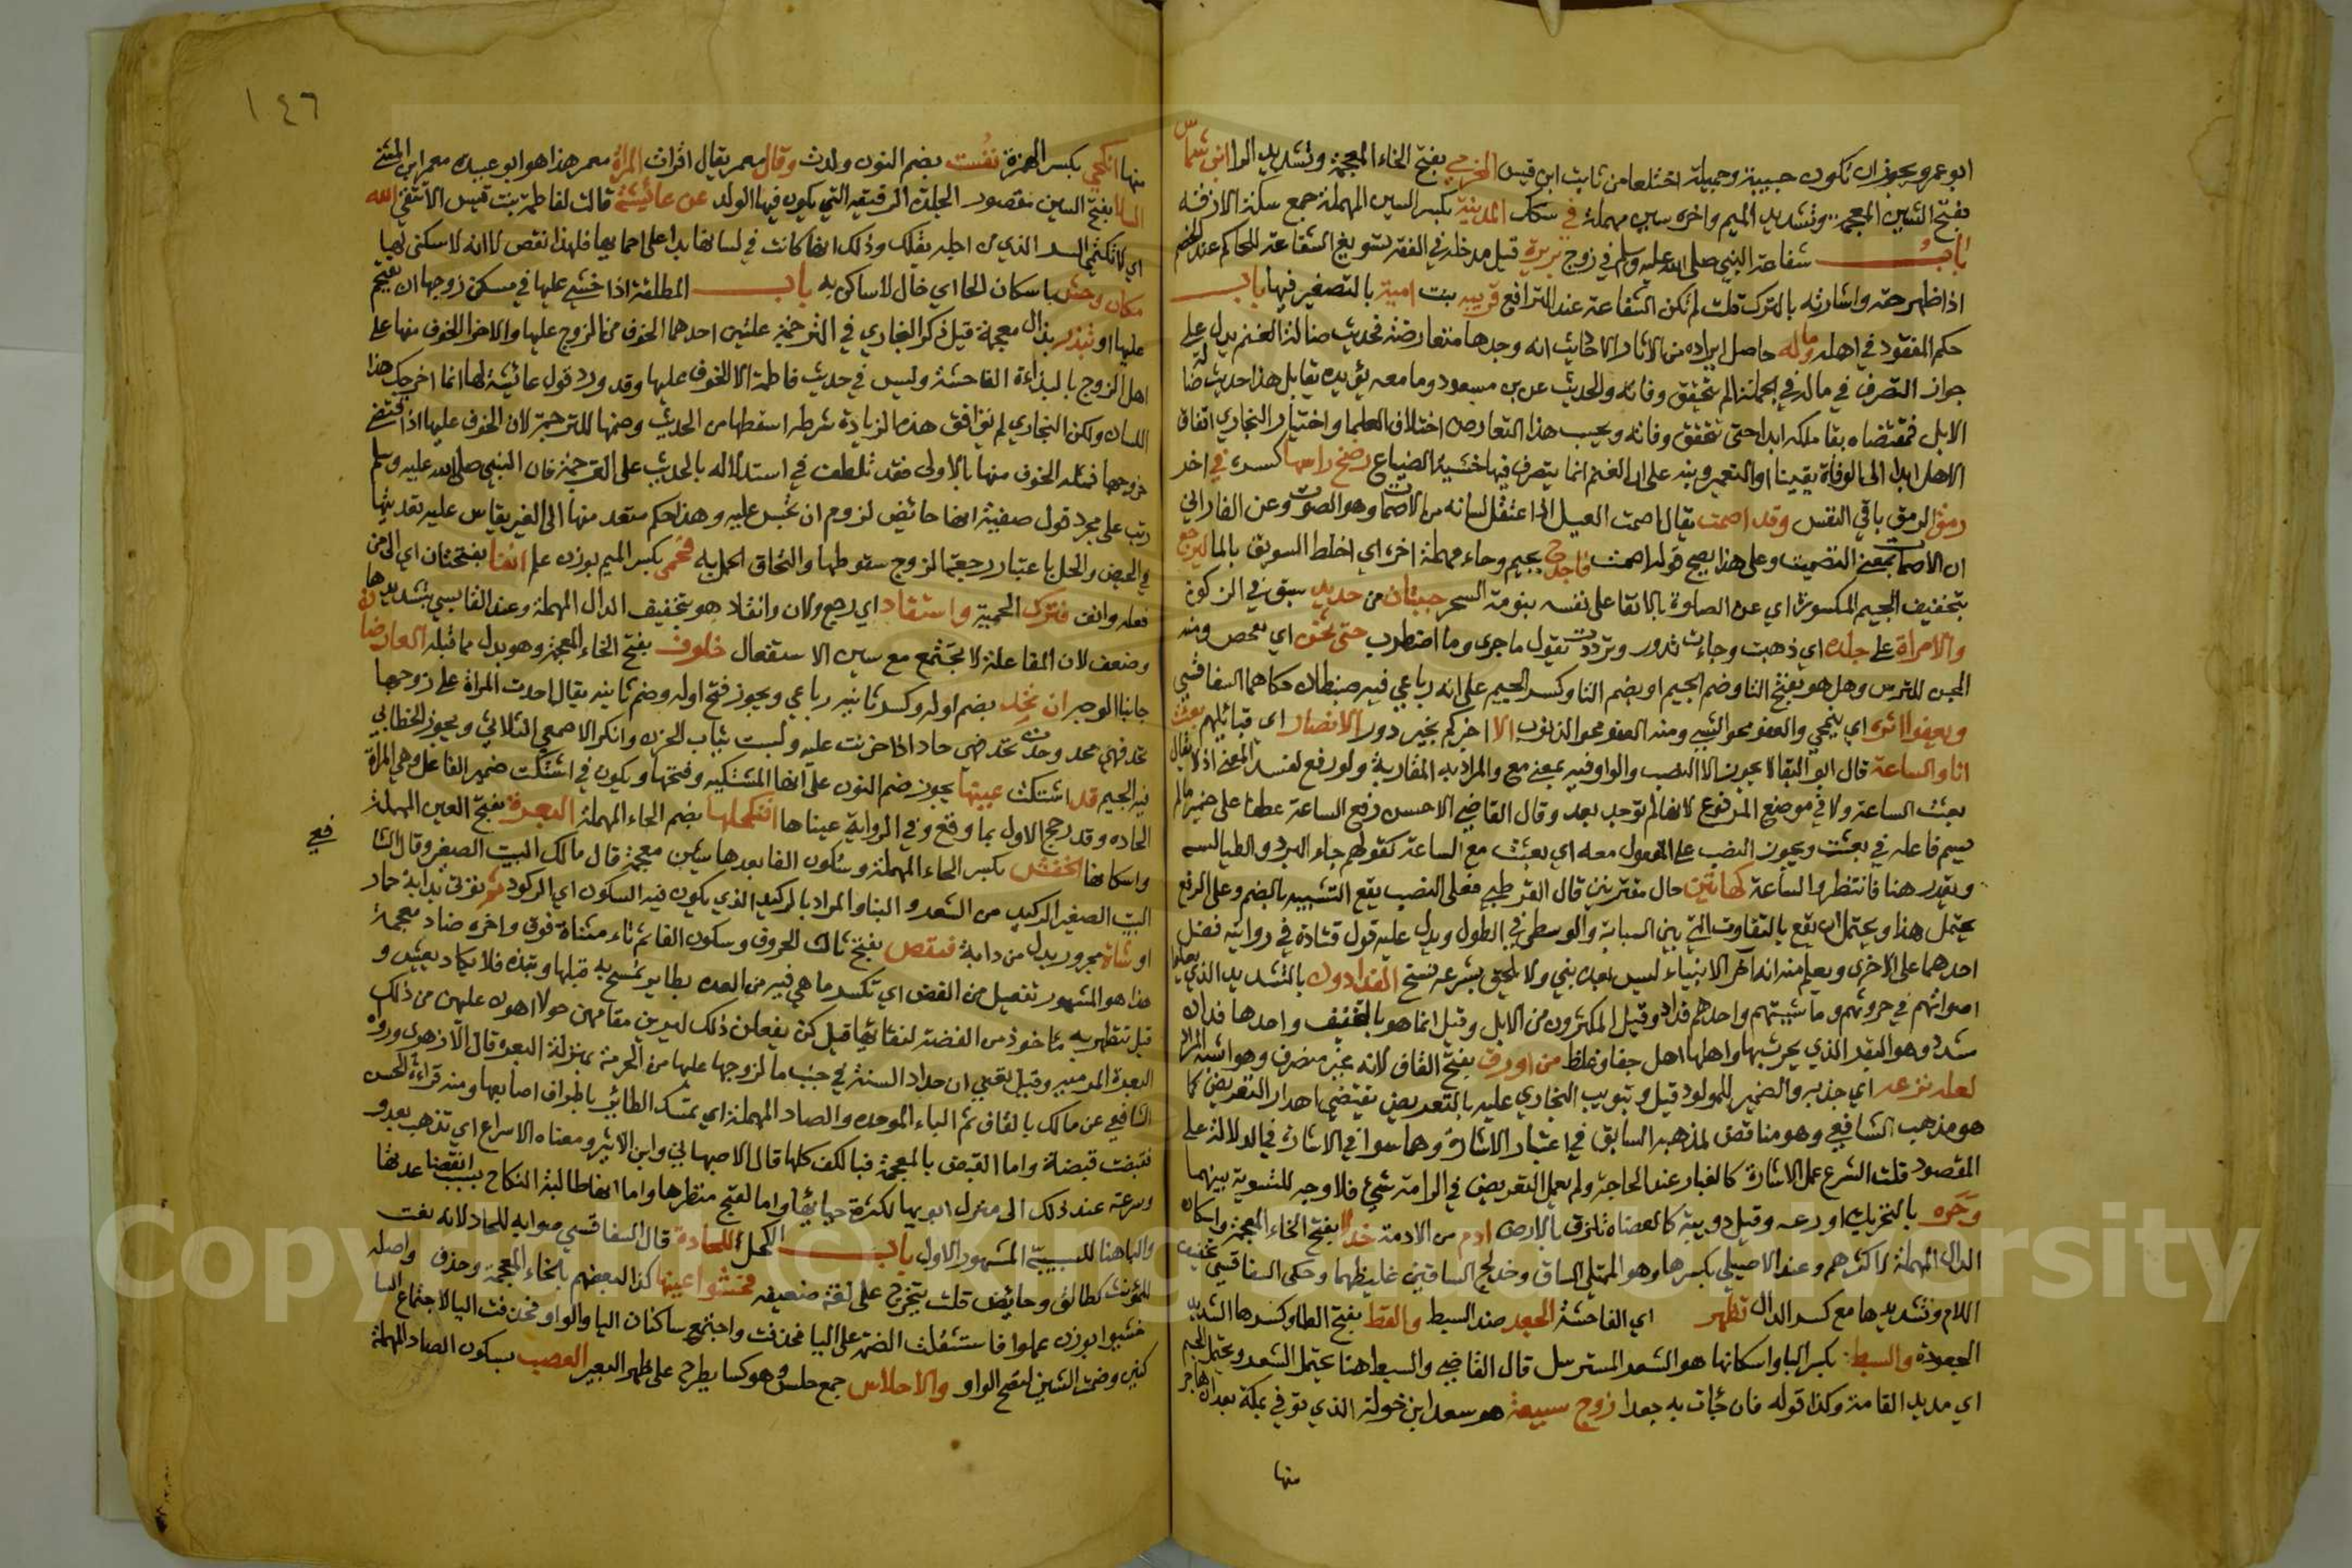 ابو عمرو يجوز ان تكون حبيبة وجميلة اختلعا من ثابت ابن قيس الخزرجي بفتح الخاء المعجمة وتشديد الواو ابن شماس
بفتح الشين المعجمة وتشديد الميم واخره سين مهملة في سكك المدينة بكسر السين المهملة جمع سكة الازقة
باب شفاعة النبي صلى الله عليه وسلم في زوج بريرة قيل مدخله في الفقه تسويغ الشفاعة للحاكم عند الخصم
اذا ظهر حقه واشارته بالترك قلت لم تكن الشفاعة عند الترافع قريبة بنت امية بالتصغير فيها باب
حكم المفقود في اهله وماله حاصل ايراده من الاثار الاحاديث انه وجدها متعارضة فحديث ضالة الغنم يدل على
جواز التصرف في ماله في الجملة لم يتحقق وفاته والحديث عن بن مسعود وما معه يؤيده يقابل هذا حديث ضالة
الابل فمقتضاه بقا ملكه ابدا حتى تتحقق وفاته ويحسب هذا التعارض اختلاف العلما واختيار البخاري اتفاق
الاهل ابدا الى الوفاة يقينا او التعمير وبنه على ان الغنم انما يتصرف فيها خشية الضياع رضخ راسها كسره في اخر
رمق الرمق باقي النفس وقد اصمت يقال اصمت العيل اذا اعتقل لسانه من الاصمات وهو الصوت وعن الفارابي
ان الاصمات بمعنى التصميت وعلى هذا يصح قوله اصمت فاجدح بجيم وحاء مهملة اخره اي اخلط السويق بالماء ليرجع
بتخفيف الجيم المكسورة اي عن الصلوة بالابقا على نفسه بنومة السحر جبتان من حديد سبق في الزكوة
والامراة على جلده اي ذهبت وجاءت تدور وترددت تقول ما جرى وما اضطرب حتى تجن اي تمحص ومنه
المجن للترس وهل هو بفتح التا وضم الجيم او بضم التا وكسر الجيم على انه رباعي فيه ضبطان حكاهما السفاقسي
ويعفوا اثره اي ينمحي والعفو محو الشيء ومنه العفو محو الذنوب الا اخبركم بخير دور الانصار اي قبائلهم بعثت
انا والساعة قال ابو البقا لا يجوز الا النصب والواو فيه بمعنى مع والمراد به المقاربة ولو رفع لفسد المعنى اذ لا يقال
بعثت الساعة ولا في موضع المرفوع لانها لم توجد بعد وقال القاضي الاحسن رفع الساعة عطفا على ضمير ما لم
يسم فاعله في بعثت ويجوز النصب على المفعول معه اي بعثت مع الساعة كقولهم جاء البرد والطيالسة
ويقدر هنا فانتظروا الساعة كهاتين حال مقترنين قال القرطبي فعلى النصب يقع التشبيه بالضم وعلى الرفع
يحتمل هذا ويحتمل ان يقع بالتفاوت التي بين السبابة والوسطى في الطول ويدل عليه قول قتادة في روايته فضل
احدهما على الاخرى ويعلم منه انه آخر الانبياء ليس بعده نبي ولا يلحق بشرعه نسخ الفدادون بالتشديد الذي تعلوا
اصواتهم في حروثهم ومواشيتهم واحدهم فداد وقيل المكثرون من الابل وقيل انما هو بالتخفيف واحدها فدان
مشدد وهو البقر الذي يحرث بها واهلها اهل جفا وغلظ من اورق بفتح القاف لانه غير منصرف وهو اشبه المراد
لعله نزعه اي جذبه والضمير للمولود قيل وتبويب البخاري عليه بالتعريض يقتضي اهدار التعريض كما
هو مذهب الشافعي وهو مناقض لمذهبه السابق في اعتبار الاشارة وهما سوا في الاشارة في الدلالة على
المقصود قلت الشرع عمل الاشارة كالعبارة عند الحاجة ولم يعمل التعريض في الزامه شيئ فلا وجه للتسوية بينهما
وحره بالتحريك اورعه وقيل دويبة كالعضاة تلزق بالارض ادم من الادمة خدلا بفتح الخاء المعجمة واسكان
الدال المهملة لاكثرهم وعند الاصيلي بكسرها وهو الممتلي الساق وخدلج الساقين غليظهما وحكى السفاقسي تخفيف
اللام وتشديدها مع كسر الدال تظهر اي الفاحشة الجعد ضد السبط والقطط بفتح الطا وكسرها الشديد
الجعودة والسبط بكسر البا واسكانها هو الشعر المسترسل قال القاضي والسبط هنا يحتمل الشعر ويحتمل الجسم
اي مديد القامة وكذا قوله فان جات به جعدا زوج سبيعة هو سعد ابن خولة الذي توفي بمكة بعد ان هاجر
منها
١٤٦
منها انكحي بكسر الهمزة نفست بضم النون ولدت وقال معمر يقال اقرات المراة معمر هذا هو ابو عبيدة معمر ابن المثنى
السلا بفتح السين مقصور الجلدة الرقيقة التي يكون فيها الولد عن عائشة قالت لفاطمة بنت قيس الا تتقي الله
اي لا تكتمي السر الذي من اجله نقلك وذلك انها كانت في لسانها بذا على احمايها فلهذا نقص لا انه لا سكنى لها
مكان وحش باسكان الحا اي خال لا ساكن به باب المطلقة اذا خشي عليها في مسكن زوجها ان يقتحم
عليها او تبذو بذال معجمة قيل ذكر البخاري في الترجمة علتين احدهما الخوف من الزوج عليها والاخر الخوف منها على
اهل الزوج بالبذاءة الفاحشة وليس في حديث فاطمة الا الخوف عليها وقد ورد قول عائشة لها انما اخرجك هذا
اللسان ولكن البخاري لم توافق هذه الزيادة شرطه اسقطها من الحديث وضمها للترجمة لان الخوف عليها اذا اقتضى
خروجها فمثله الخوف منها بالاولى فقد تلطف في استدلاله بالحديث على الترجمة فان النبي صلى الله عليه وسلم
رتب على مجرد قول صفية انها حائض لزوم ان تحبس عليه وهذا حكم متعد منها الى الغير يقاس عليه تعديتها
في الحيض والحمل باعتبار رجعة الزوج سقوطها والتحاق الحمل به فحمي بكسر الميم بوزن علم انفا بفتحتان اي الى من
فعله وانف فترك الحمية واستقاد اي رجع ولان وانقاد هو بتخفيف الدال المهملة وعند القابسي بتشديدها
وضعف لان المفاعلة لا تجتمع مع سين الاستفعال خلوف بفتح الخاء المعجمة وهو بدل مما قبله العارضان
جانبا الوجه ان تحد بضم اوله وكسر ثانيه رباعي ويجوز فتح اوله وضم ثانيه يقال احدت المراة على زوجها
تحد فهي محد وحدت تحد فهي حاد اذا حزنت عليه ولبست ثياب الحزن وانكر الاصمعي الثلاثي ويجوز الخطابي
فيه الجيم قد اشتكت عينها يجوز ضم النون على انها المشتكيه وفتحها ويكون في اشتكت ضمير الفاعل وهي المراة
الحاده وقد رجح الاول بما وقع في الرواية عيناها افنكحلها بضم الحاء المهملة البعرة بفتح العين المهملة
واسكانها الحفش بكسر الحاء المهملة وسكون الفا بعدها شين معجمة قال مالك البيت الصغير وقال الشا
فعي
البيت الصغير الركيك من الشعر والبنا والمراد بالركيك الذي يكون فيه السكون اي الركود ثم توتى بدابة حمار
او شاة مجرور بدل من دابة فتفتض بفتح ثالث الحروف وسكون الفا ثم تاء مثناة فوق واخره ضاد معجمة
هذا هو المشهور تفتعل من الفض اي تكسر ما هي فيه من العدة بطاير تمسح به قبلها وتنبذه فلا يكاد يعيش و
قيل تتطهر به ماخوذ من الفضة لنقائها قيل كن يفعلن ذلك ليرين مقامهن حولا اهون عليهن من ذلك
البعرة المرمية وقيل تعني ان حداد السنة في جنب ما لزوجها عليها من الحرمة بمنزلة البعرة قال الازهري ورواه
الشافعي عن مالك بالقاف ثم الباء الموحده والصاد المهملة اي تمسك الطائر باطراف اصابعها ومنه قراءة الحسن
فقبضت قبضة واما القبض بالمعجمة فبالكف كلها قال الاصبهاني وابن الاثير ومعناه الاسراع اي تذهب بعدو
وسرعة عند ذلك الى منزل ابويها لكثرة حيائها واما لقبح منظرها واما انها طالبة النكاح بسبب انقضا عدتها
والبا هنا للسببية المشهور الاول باب الكحل للحادة قال السفاقسي صوابه للحاد لانه نعت
للمونث كطالق وحائض قلت يتخرج على لغة ضعيفه فخشوا عينها كذا لبعضهم بالخاء المعجمة وحذف واصله
خشيوا بوزن عملوا فاستثقلت الضمة على اليا فحذفت واجتمع ساكنان اليا والواو فحذفت اليا لاجتماع السا
كنين وضمت الشين لتصح الواو والاحلاس جمع حلس وهو كسا يطرح على ظهر البعير العصب بسكون الصاد المهملة
Copyright © King Saud University